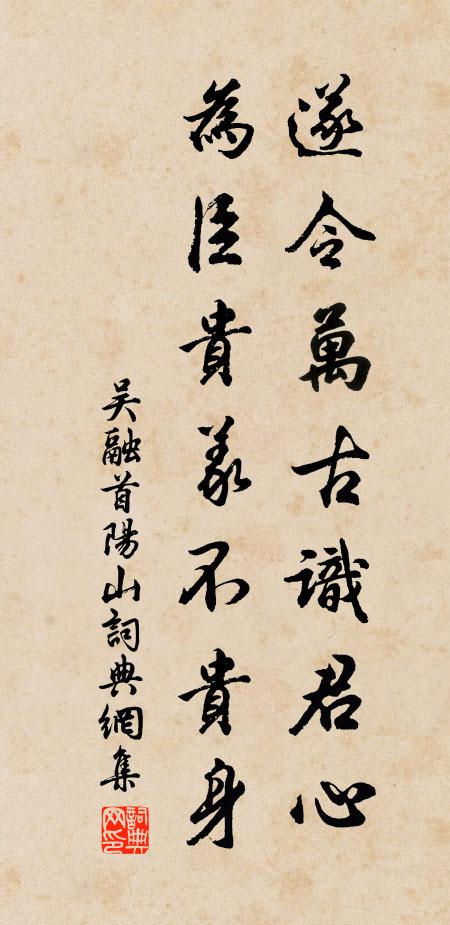 遂令萬古識君心
為臣貴義不貴身
吴融首陽山詞典網集
詞典网印